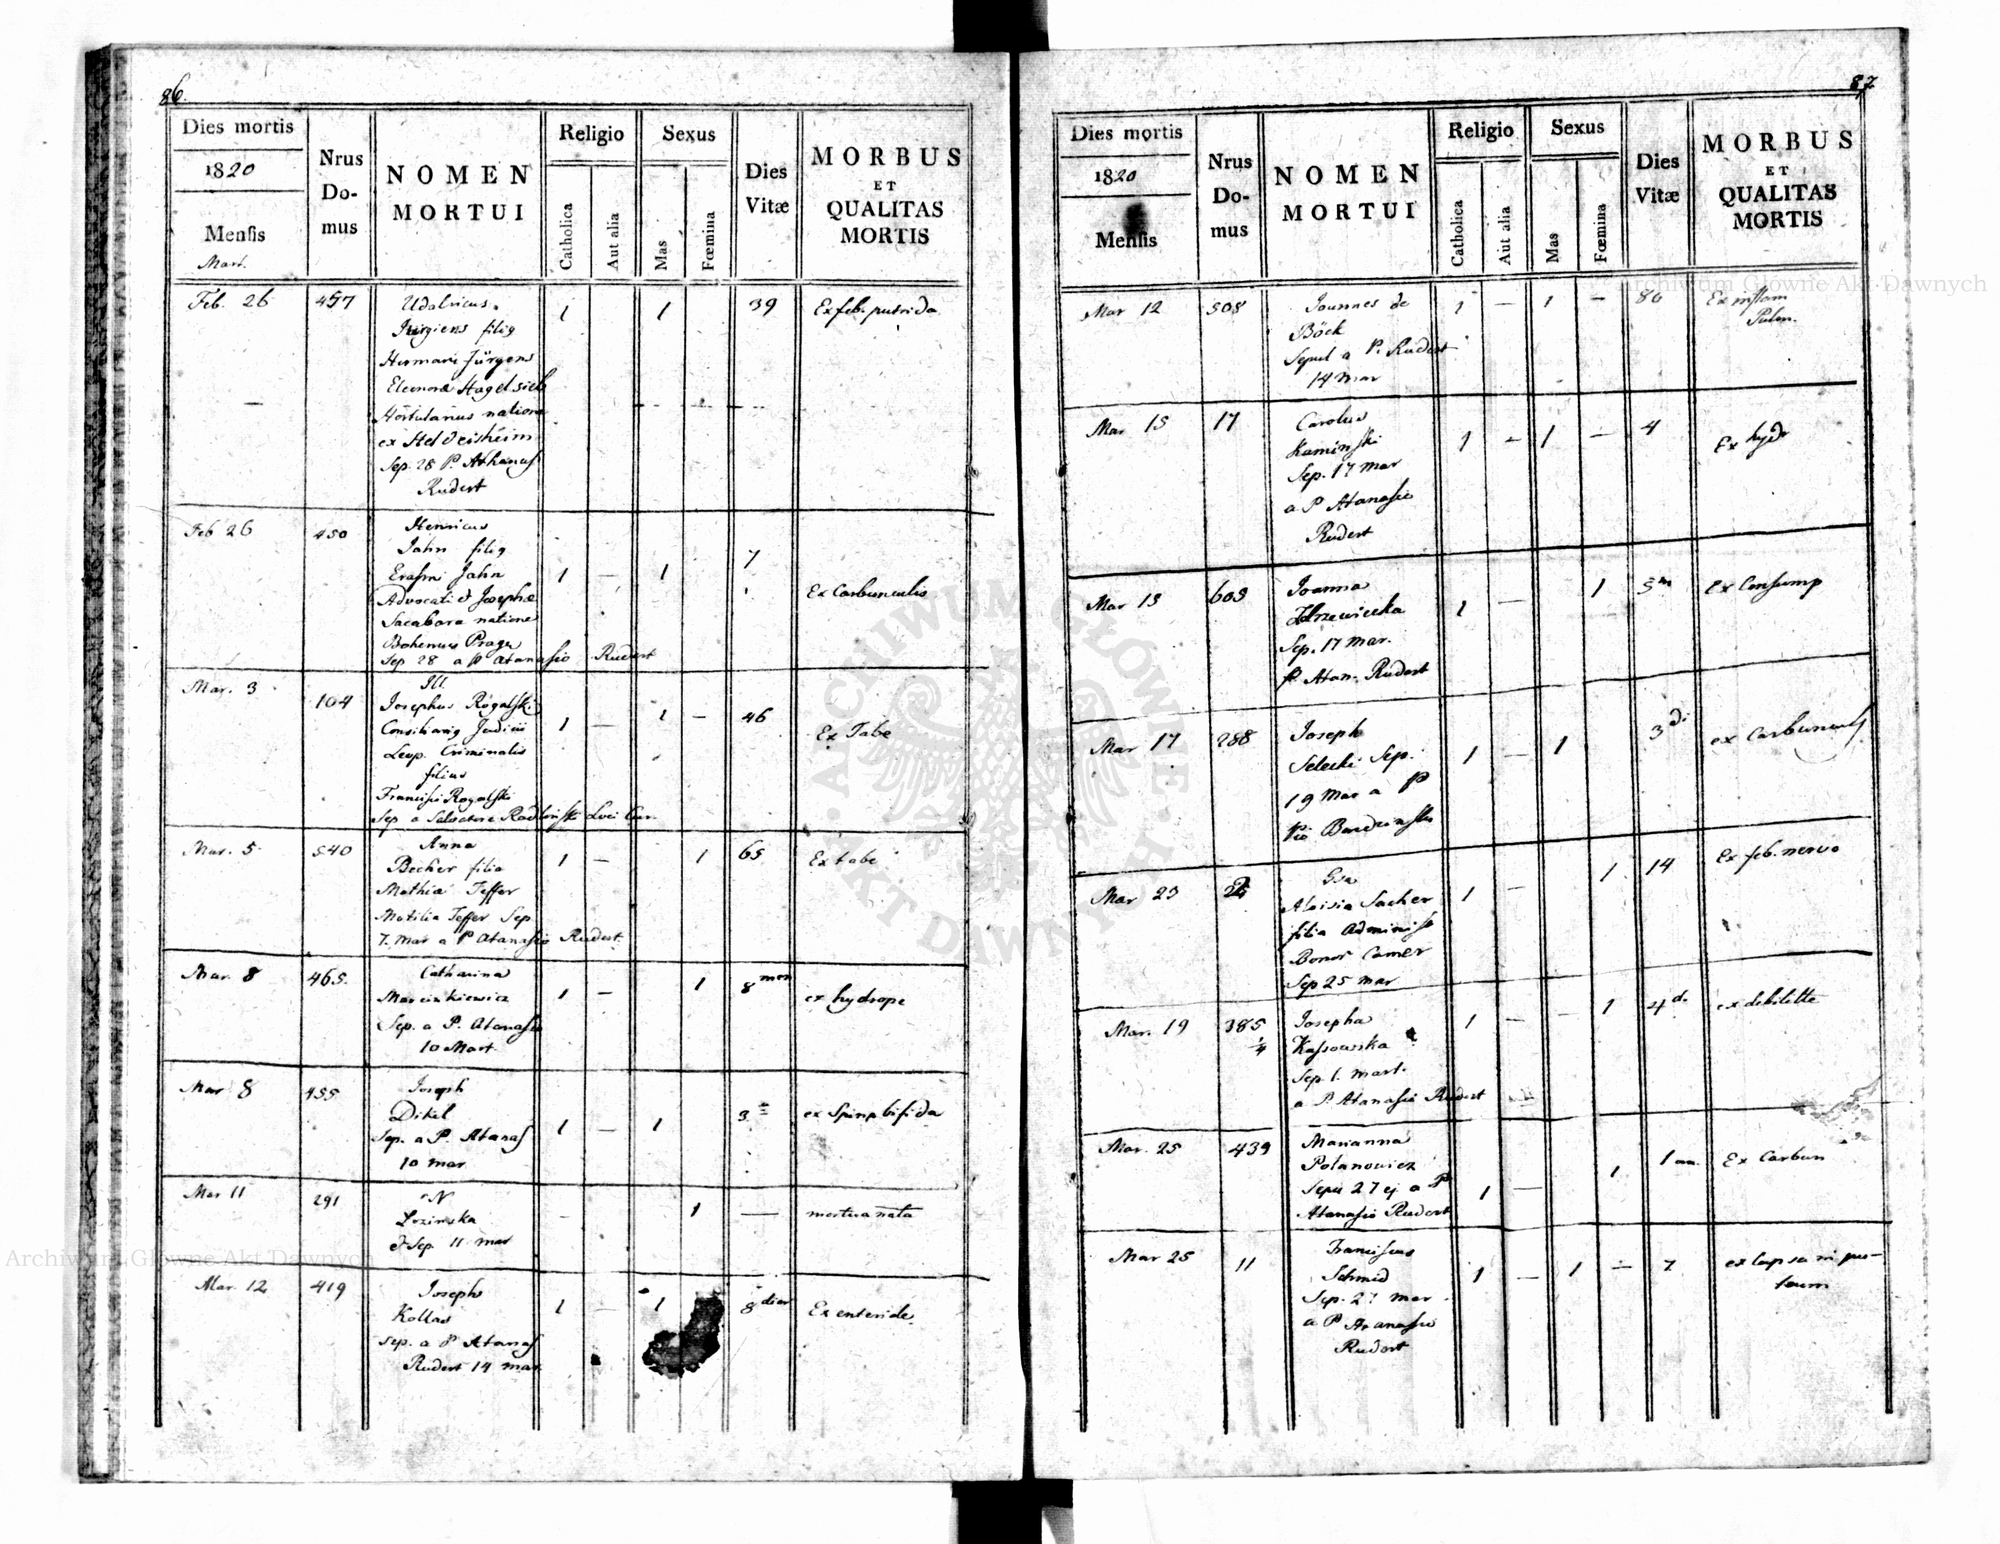 86.
Dies mortis
1820
Mensis
Mart.
Nrus
Do-
mus
NOMEN
MORTUI
Religio
Catholica
Aut alia
Sexus
Mas
Fœmina
Dies
Vitæ
MORBUS
ET
QUALITAS
MORTIS
Feb. 26 457 Udalricus 1 1 39 Ex feb. putrida
Jürgens filig
Hermani Jürgens
Eleonora Hagelsieb
Hortulanus natione
ex Heldeisheim
Sep. 28 P. Athanas
Rudert
Feb 26 450 Henricus
Jahn filig
Erasmi Jahn 1 — 1 7 Ex Carbunculis
Advocati & Josephæ
Sacabara natione
Bohemus Praga
Sep 28 a P Atanasio Rudert
Mar. 3 104 Ill.
Josephus Rogalski
Consiliarig Judicii 1 — 1 — 46 Ex Tabe
Leop. Criminalis
filius
Francisci Rogalski
Sep a Salvatore Radlinski Loci Cur.
Mar. 5 540 Anna
Becher filia 1 — 1 65 Ex tabe
Mathia Teffer
Matilia Teffer Sep
7. Mar a P Atanasio Rudert
Mar. 8 465. Catharina
Marcinkiewicz 1 — 1 8 men ex hydrope
Sep. a P. Atanasio
10 Mart.
Mar 8 455 Joseph
Dikel
Sep. a P. Atanas 1 — 1 3 ex Spina bifida
10 mar
Mar 11 291 N
Lozinska — 1 — mortua nata
& Sep 11 mar
Mar. 12 419 Josephs
Kollas 1 — 1 8 dier Ex enteride
Sep. a P Atanas
Rudert 14 mar
87
Dies mortis
1820
Mensis
Nrus
Do-
mus
NOMEN
MORTUI
Religio
Catholica
Aut alia
Sexus
Mas
Fœmina
Dies
Vitæ
MORBUS
ET
QUALITAS
MORTIS
Mar 12 508 Joannes de 1 — 1 — 80 Ex inflam
Böck Pulm.
Sepul a P. Rudert
14 mar
Mar 15 17 Carolus
Kaminski 1 — 1 — 4 Ex hydr
Sep. 17 Mar
a P Atanasio
Rudert
Mar 15 605 Joanna 1 — 1 5 m Ex Consump
Sep. 17 Mar.
P. Atan. Rudert
Mar 17 288 Joseph
Selecki Sep. 1 — 1 3 di ex Carbuncul
19 Mar a P
Pio Burdzinski
Mar 23 Gsa 1 — 1 14 Ex feb. nervo
Aloisia Sacher
filia Adminis
Bonor Camer
Sep 25 mar
Mar. 19 385 Josepha 1 — — 1 4 d. ex debilitte
/4 Kassowska
Sep. 1. mart.
a P. Atanasio Rudert
Mar. 25 439 Marianna
Polanowicz 1 1 an. Ex Carbun
Sepu 27 ej a P 1 —
Atanasio Rudert
Mar 25 11 Franciscus
Schmid 1 — 1 — 7 ex lapsu in pu-
Sep. 27 mar teum
a P Atanasio
Rudert
Archiwum Główne Akt Dawnych
Archiwum Główne Akt Dawnych
ARCHIWUM GŁÓWNE AKT DAWNYCH